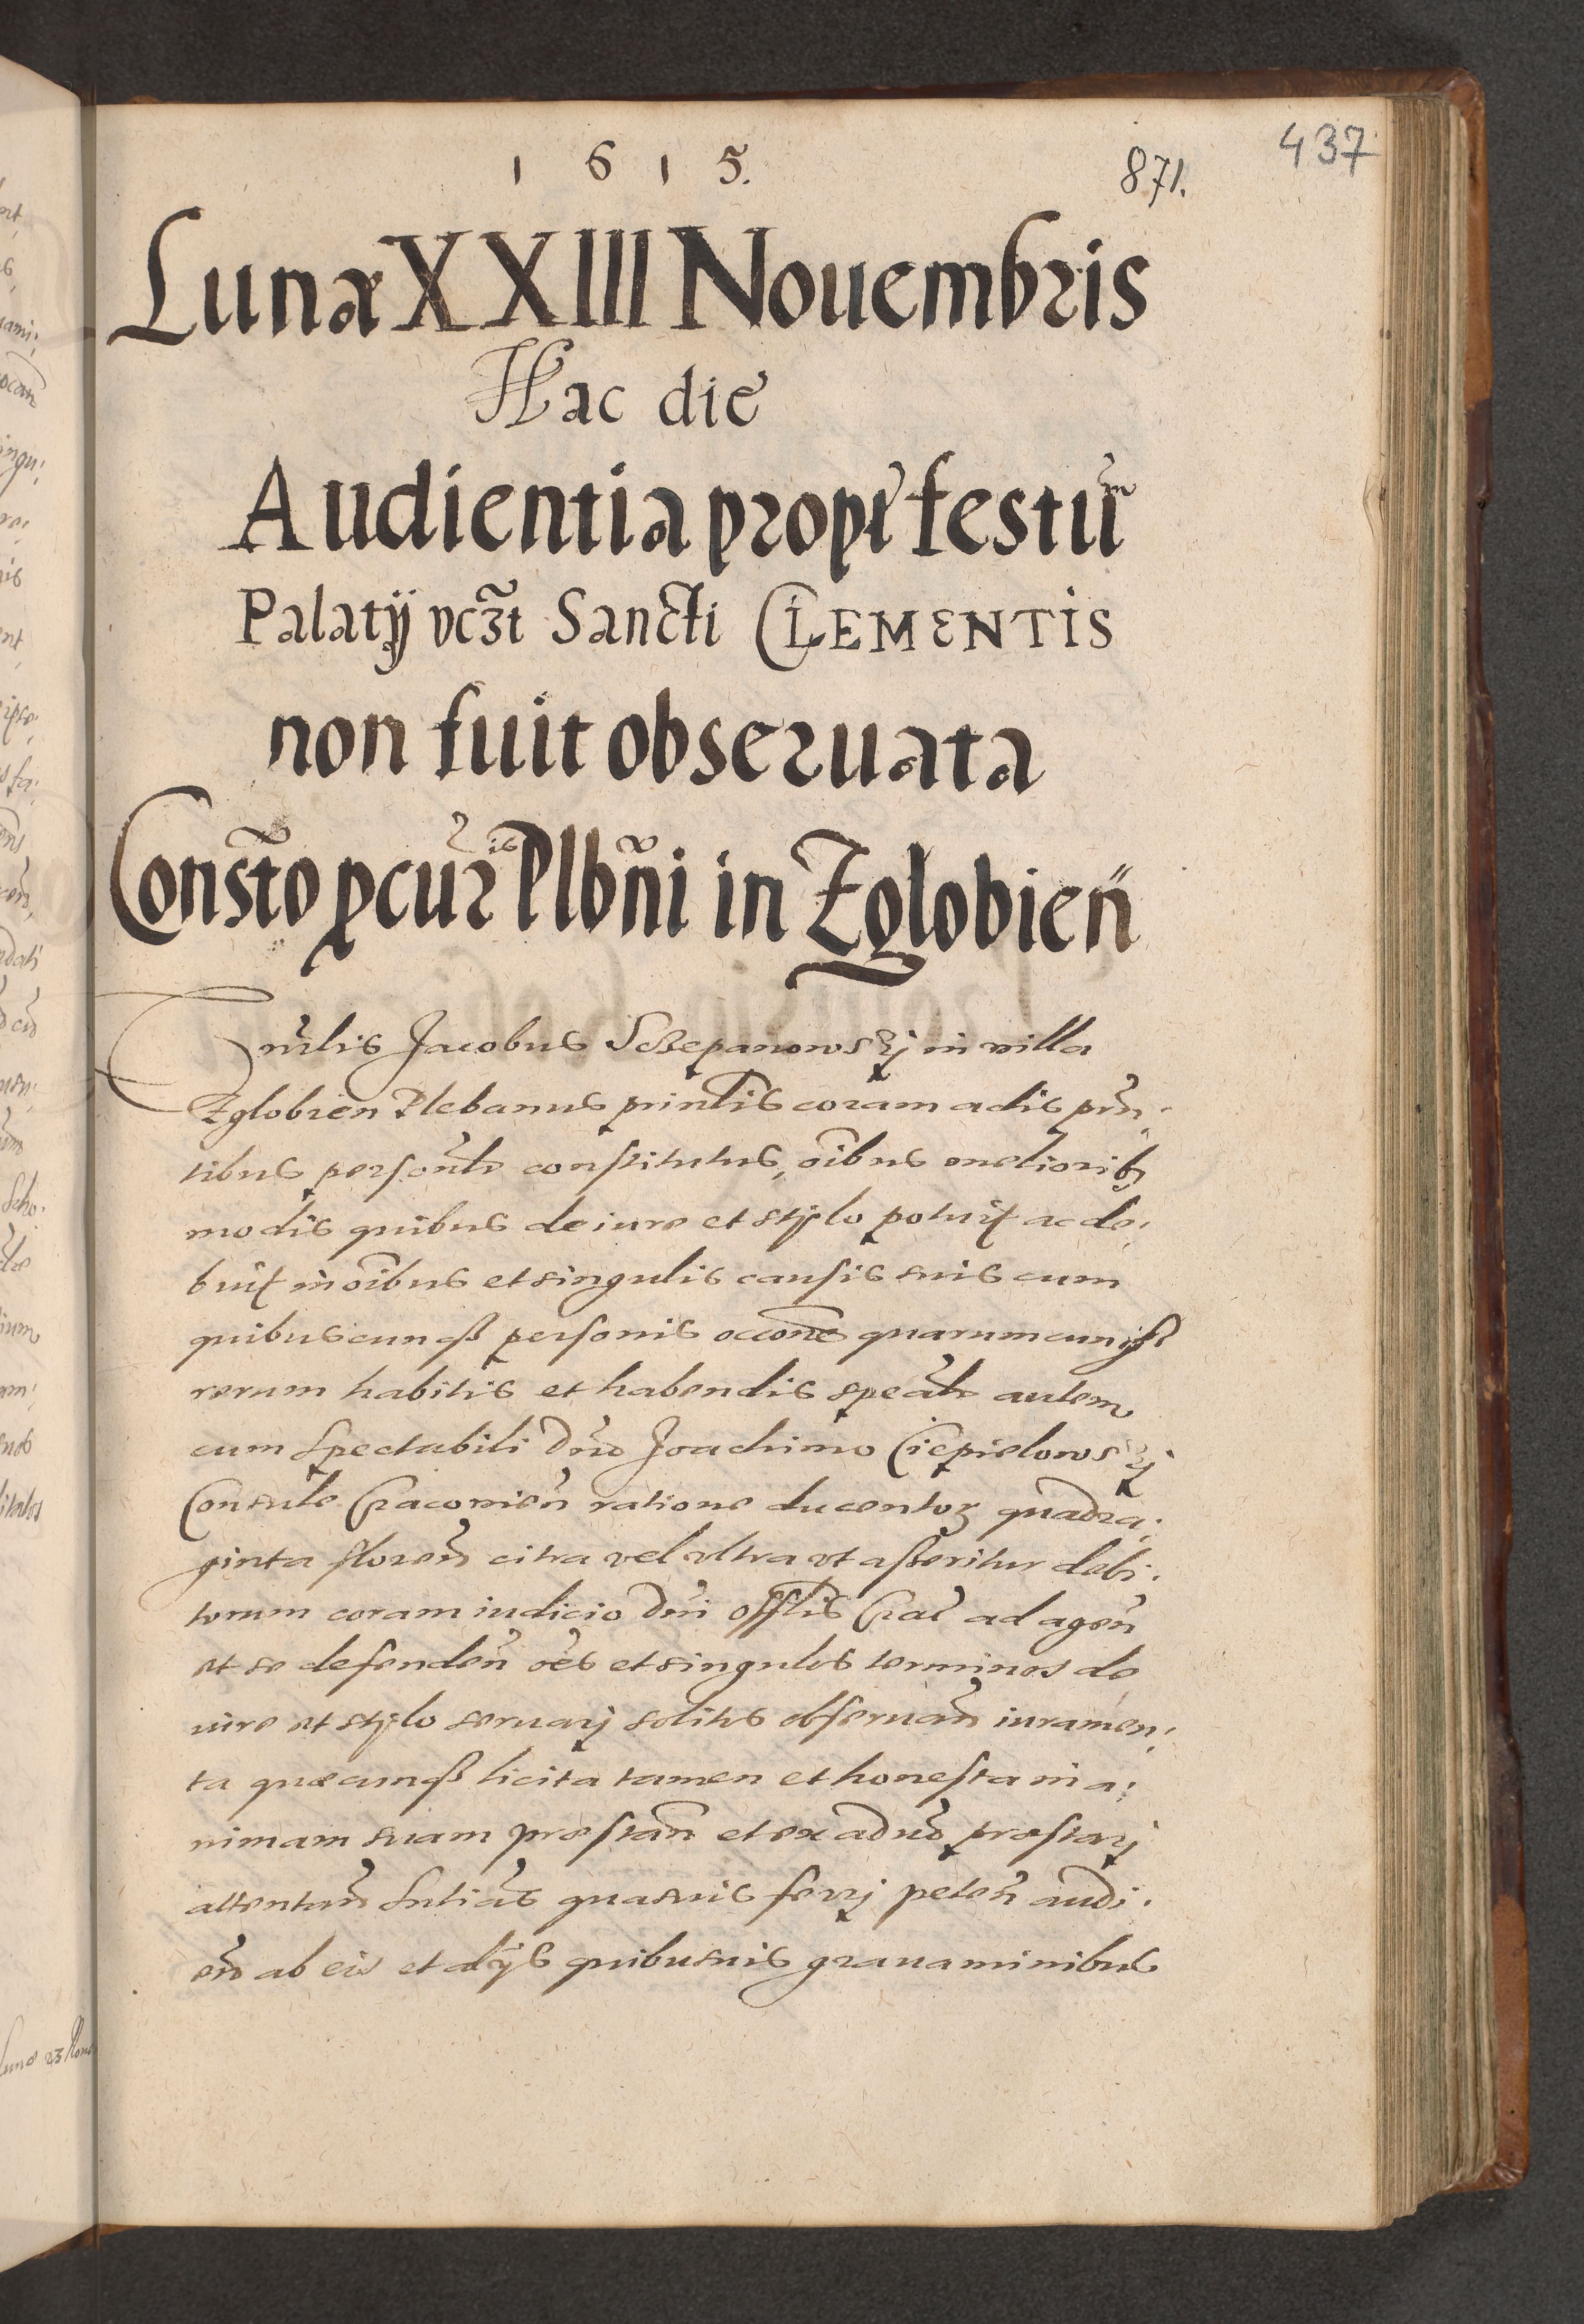 1 6 1 5.
871.
437
Lunæ XXIII Nouembris
Hac die
Audientia propr festũm
Palatij vczt Sancti CLEMENTIS
non fuit obseruata
Consto pcur̃is Plbñi in Zglobieñ
Jacobus Sczepanowskj in villa
Zglobien Plebanus prinlis coram actis prñ:
tibus persoñlr constitutus, oĩbus meliorib9
modis quibus de iure et stylo potuit ac de:
buit in oĩbus et singulis causis suis cum
quibuscunqz personis occõne quarumcunqz
rerum habitis et habendis speãlr autem
cum Spectabili Dño Joachimo Ciepielowskj
Consule Cracovieñ ratione ducentoꝝ quadra:
ginta floreñ citra vel vltra vt asseritur debi:
torum coram iudicio Dñi Offlis Crac̃ ad ageñ
et se defendeñ oẽs et singulos terminos de
iure et stylo seruarj solitos obseruañ iuramen:
ta quæcunqz licita tamen et honesta in a:
nimam suam præstañ et ex aduo præstarj
attentañ sntiãs quasuis ferrj peteñ audi:
eñ ab eis et alijs quibusuis grauaminibus